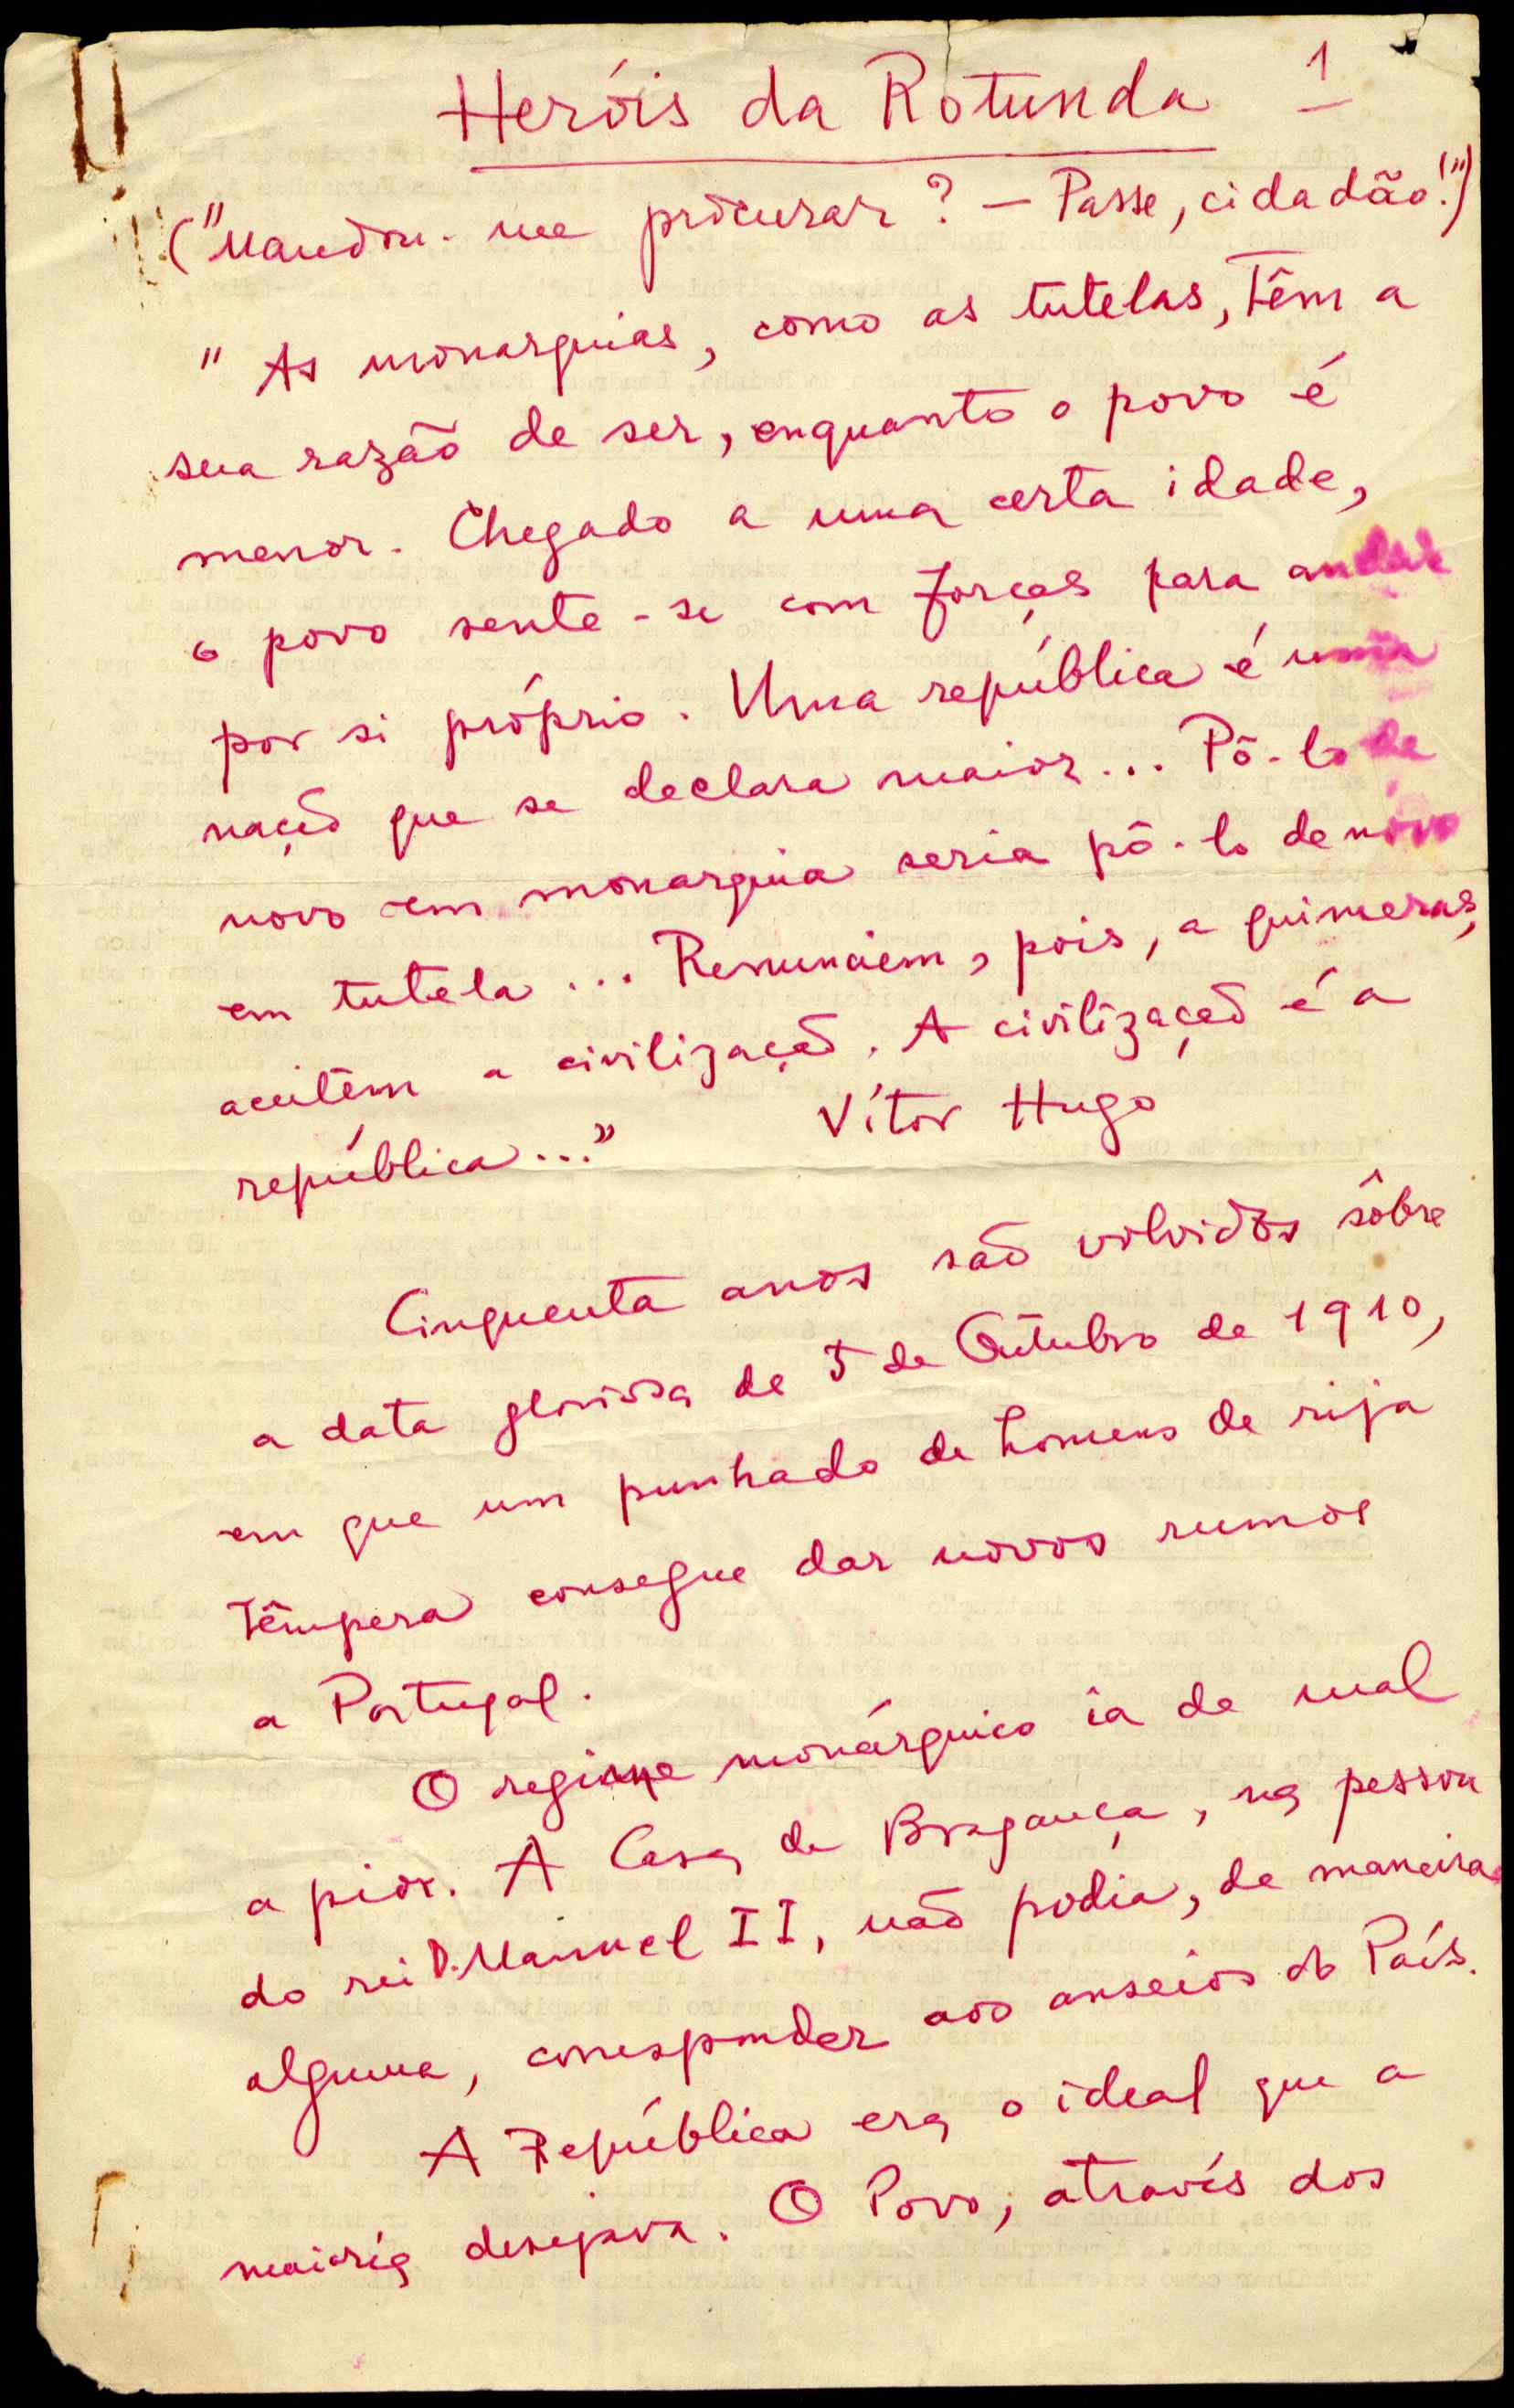 Heróis da Rotunda 1
("Mandou-me procurar? — Passe, cidadão!")
" As monarquias, como as tutelas, têm a
sua razão de ser, enquanto o povo é
menor. Chegado a uma certa idade,
o povo sente-se com forças para andar
por si próprio. Uma república é uma
nação que se declara maior... Pô-lo de
novo em monarquia seria pô-lo de novo
em tutela... Renunciem, pois, a quimeras,
aceitem a civilização. A civilização é a
república..." Vítor Hugo
Cinquenta anos são volvidos sôbre
a data gloriosa de 5 de Outubro de 1910,
em que um punhado de homens de rija
têmpera consegue dar novos rumos
a Portugal.
O regime monárquico ia de mal
a pior. A Casa de Bragança, na pessoa
do rei D. Manuel II, não podia, de maneira
alguma, corresponder aos anseios do País.
A República era o ideal que a
maioria desejava. O Povo, através dos